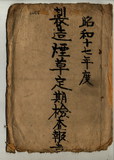 昭和十七年度
製造煙草定期検査報告